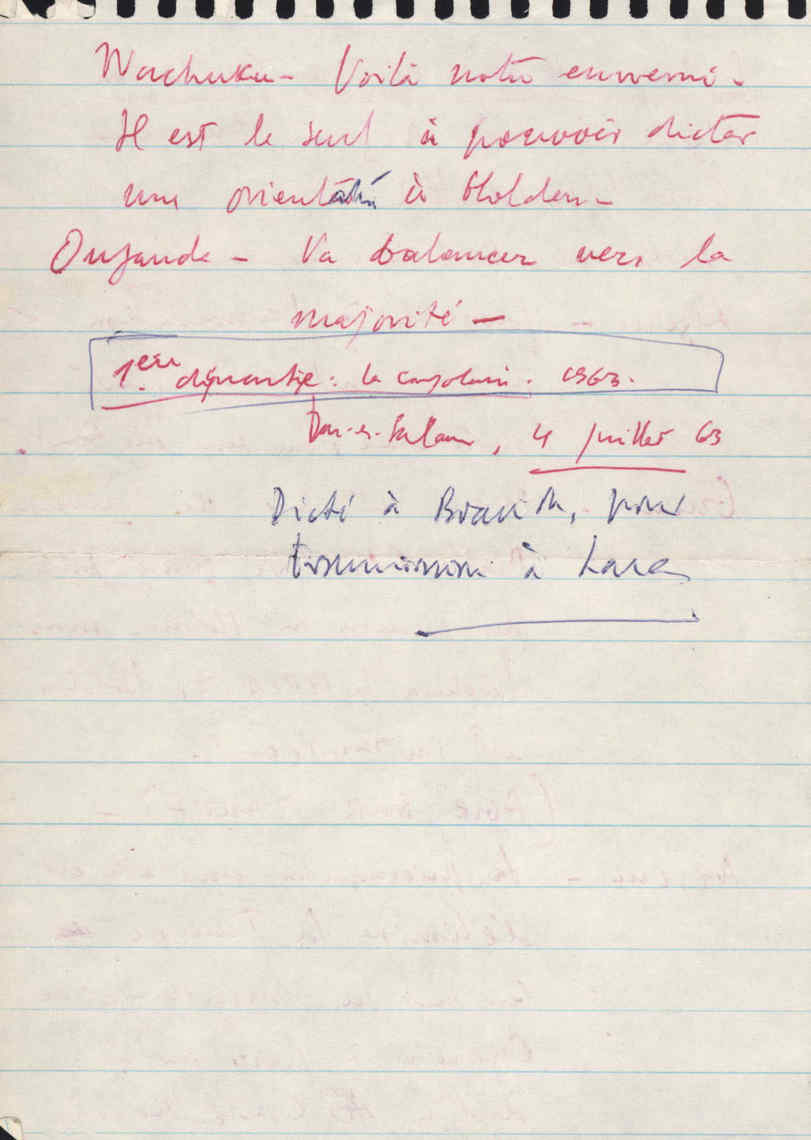 Wachuku - Voilà notre ennemi -
Il est le seul à pouvoir dicter
une orientation à Holden -
Ouganda - Va balancer vers la
majorité -
1ère : la . 1963.
Dar-es-Salam, 4 juillet 63
Dicté à , pour
transmission à Lara